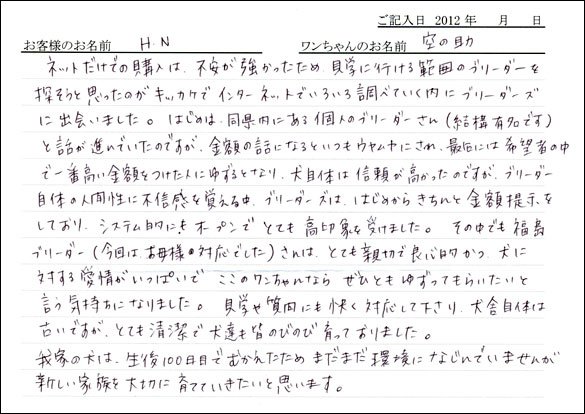 ご記入日 2012 年　月　日
お客様のお名前 H.N ワンちゃんのお名前 空の助
ネットだけでの購入は、不安が強かったため、見学に行ける範囲のブリーダーを
探そうと思ったのがキッカケでインターネットでいろいろ調べていく内にブリーダーズ
に出会いました。はじめは、同県内にある個人のブリーダーさん(結構有名です)
と話が進んでいたのですが、金額の話になるといつもウヤムヤにされ、最后には希望者の中
で一番高い金額をつけた人にゆずるとなり、犬自体は信頼が高かったのですが、ブリーダー
自体の人間性に不信感を覚える中、ブリーダーズは、はじめからきちんと金額提示を
しており、システム的にもオープンでとても高印象を受けました。その中でも福島
ブリーダー(今回はお母様の対応でした)さんは、とても親切で良心的かつ、犬に
対する愛情がいっぱいで ここのワンちゃんなら ぜひともゆずってもらいたいと
言う気持ちになりました。見学や質問にも快く対応して下さり、犬舎自体は
古いですが、とても清潔で犬達も皆のびのび育っておりました。
我家の犬は、生後100日目でむかえたため まだまだ環境になじんでいませんが
新しい家族を大切に育てていきたいと思います。